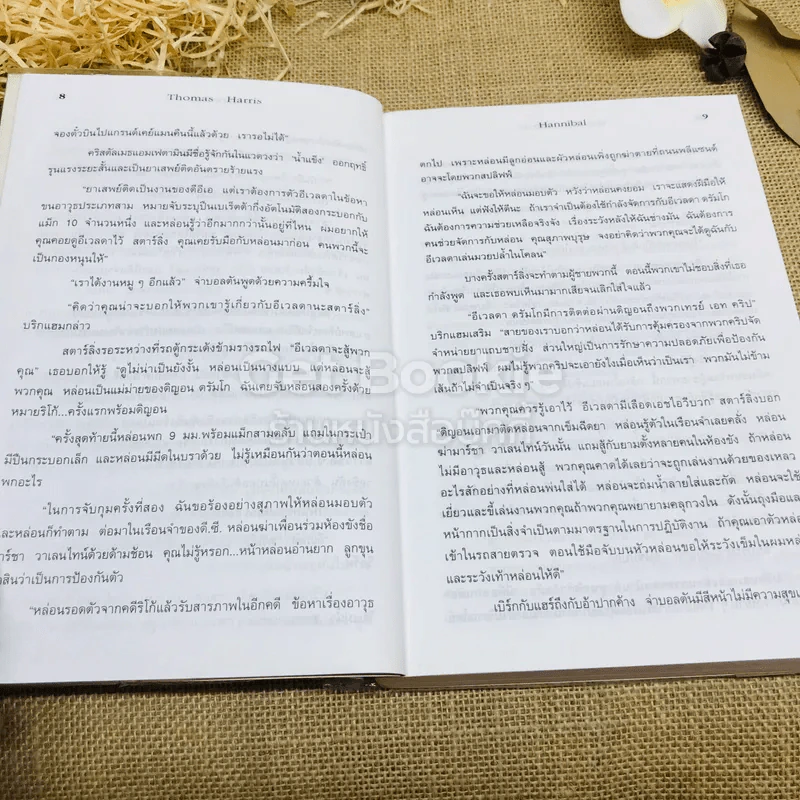 8 Thomas Harris
จองตั๋วบินไปแกรนด์เคย์แมนคืนนี้แล้วด้วย เรารอไม่ได้"
คริสตัลเมธแอมเฟตามินมีชื่อรู้จักกันในแดดวงว่า 'น้ำแข็ง' ออกฤทธิ์
รุนแรงระยะสั้นและเป็นยาเสพติดอันตรายร้ายแรง
"ยาเสพย์ติดเป็นงานของดีอีเอ แต่เราต้องการตัวอีเวลดาในข้อหา
ขนอาวุธประเภทสาม หมายจับระบุปืนเบเร็ตต้ากึ่งอัตโนมัติสองกระบอกกับ
แม็ก 10 จำนวนหนึ่ง และหล่อนรู้ว่าอีกมากกว่านั้นอยู่ที่ไหน ผมอยากให้
คุณคอยดูอีเวลดาไว้ สตาร์ลิ่ง คุณเคยรับมือกับหล่อนมาก่อน คนพวกนี้จะ
เป็นกองหนุนให้"
"เราได้งานหมู ๆ อีกแล้ว" จ่าบอลตันพูดด้วยความครึ้มใจ
"คิดว่าคุณน่าจะบอกให้พวกเขารู้เกี่ยวกับอีเวลดานะสตาร์ลิ่ง"
บริกแฮมกล่าว
สตาร์ลิ่งรอระหว่างที่รถตู้กระเด้งข้ามรางรถไฟ "อีเวลดาจะสู้พวก
คุณ" เธอบอกให้รู้ "ดูไม่น่าเป็นยังงั้น หล่อนเป็นนางแบบ แต่หล่อนจะสู้
พวกคุณ หล่อนเป็นแม่ม่ายของดิญอน ดรัมโก ฉันเคยจับหล่อนสองครั้งด้วย
หมายริโก้...ครั้งแรกพร้อมดิญอน
"ครั้งสุดท้ายนี้หล่อนพก 9 มม.พร้อมแม็กสามตลับ แถมในกระเป๋า
มีปืนกระบอกเล็ก และหล่อนมีมีดในบราด้วย ไม่รู้เหมือนกันว่าตอนนี้หล่อน
พกอะไร
"ในการจับกุมครั้งที่สอง ฉันขอร้องอย่างสุภาพให้หล่อนมอบตัว
และหล่อนก็ทำตาม ต่อมาในเรือนจำของดี.ซี. หล่อนฆ่าเพื่อนร่วมห้องขังชื่อ
าร์ชา วาเลนไทน์ด้วยด้ามช้อน คุณไม่รู้หรอก...หน้าหล่อนอ่านยาก ลูกขุน
สินว่าเป็นการป้องกันตัว
"หล่อนรอดตัวจากคดีริโก้แล้วรับสารภาพในอีกคดี ข้อหาเรื่องอาวุธ
Hannibal 9
ตกไป เพราะหล่อนมีลูกอ่อนและผัวหล่อนเพิ่งถูกฆ่าตายที่ถนนพลีแซนต์
อาจจะโดยพวกสปลิฟฟ์
"ฉันจะขอให้หล่อนมอบตัว หวังว่าหล่อนคงยอม เราจะแสดงฝีมือให้
หล่อนเห็น แต่ฟังให้ดีนะ ถ้าเราจำเป็นต้องใช้กำลังจัดการกับอีเวลดา ดรัมโก
ฉันต้องการความช่วยเหลือจริงจัง เรื่องระวังหลังให้ฉันช่างมัน ฉันต้องการ
คนช่วยจัดการกับหล่อน คุณสุภาพบุรุษ จงอย่าคิดว่าพวกคุณจะได้ดูฉันกับ
อีเวลดาเล่นมวยปล้ำในโคลน"
บางครั้งสตาร์ลิ่งจะทำตามผู้ชายพวกนี้ ตอนนี้พวกเขาไม่ชอบสิ่งที่เธอ
กำลังพูด และเธอพบเห็นมามากเสียจนเลิกใส่ใจแล้ว
"อีเวลดา ดรัมโกมีการติดต่อผ่านดิญอนถึงพวกเทรย์ เอท คริป"
บริกแฮมเสริม "สายของเราบอกว่าหล่อนได้รับการคุ้มครองจากพวกคริปจัด
จำหน่ายยาแถบชายฝั่ง ส่วนใหญ่เป็นการรักษาความปลอดภัยเพื่อป้องกัน
พวกสปลิฟฟ์ ผมไม่รู้พวกคริปจะเอายังไงเมื่อเห็นว่าเป็นเรา พวกมันไม่ข้าม
เส้นถ้าไม่จำเป็นจริง ๆ"
"พวกคุณควรรู้เอาไว้ อีเวลดามีเลือดเอชไอวีบวก" สตาร์ลิ่งบอก
"ดิญอนเอามาติดหล่อนจากเข็มฉีดยา หล่อนรู้ตัวในเรือนจำเลยคลั่ง หล่อน
ฆ่ามาร์ชา วาเลนไทน์วันนั้น แถมสู้กับยามตั้งหลายคนในห้องขัง ถ้าหล่อน
ไม่มีอาวุธและหล่อนสู้ พวกคุณคาดได้เลยว่าจะถูกเล่นงานด้วยของเหลว
อะไรสักอย่างที่หล่อนพ่นใส่ได้ หล่อนจะถ่มน้ำลายใส่และกัด หล่อนจะใช้
เยี่ยวและขี้เล่นงานพวกคุณถ้าพวกคุณพยายามคลุกวงใน ดังนั้นถุงมือและ
หน้ากากเป็นสิ่งจำเป็นตามมาตรฐานในการปฏิบัติงาน ถ้าคุณเอาตัวหล่อน
เข้าในรถสายตรวจ ตอนใช้มือจับบนหัวหล่อนขอให้ระวังเข็มในผมหล่
และระวังเท้าหล่อนให้ดี"
เบิร์กกับแฮร์ถึงกับอ้าปากค้าง จ่าบอลตันมีสีหน้าไม่มีความสุข